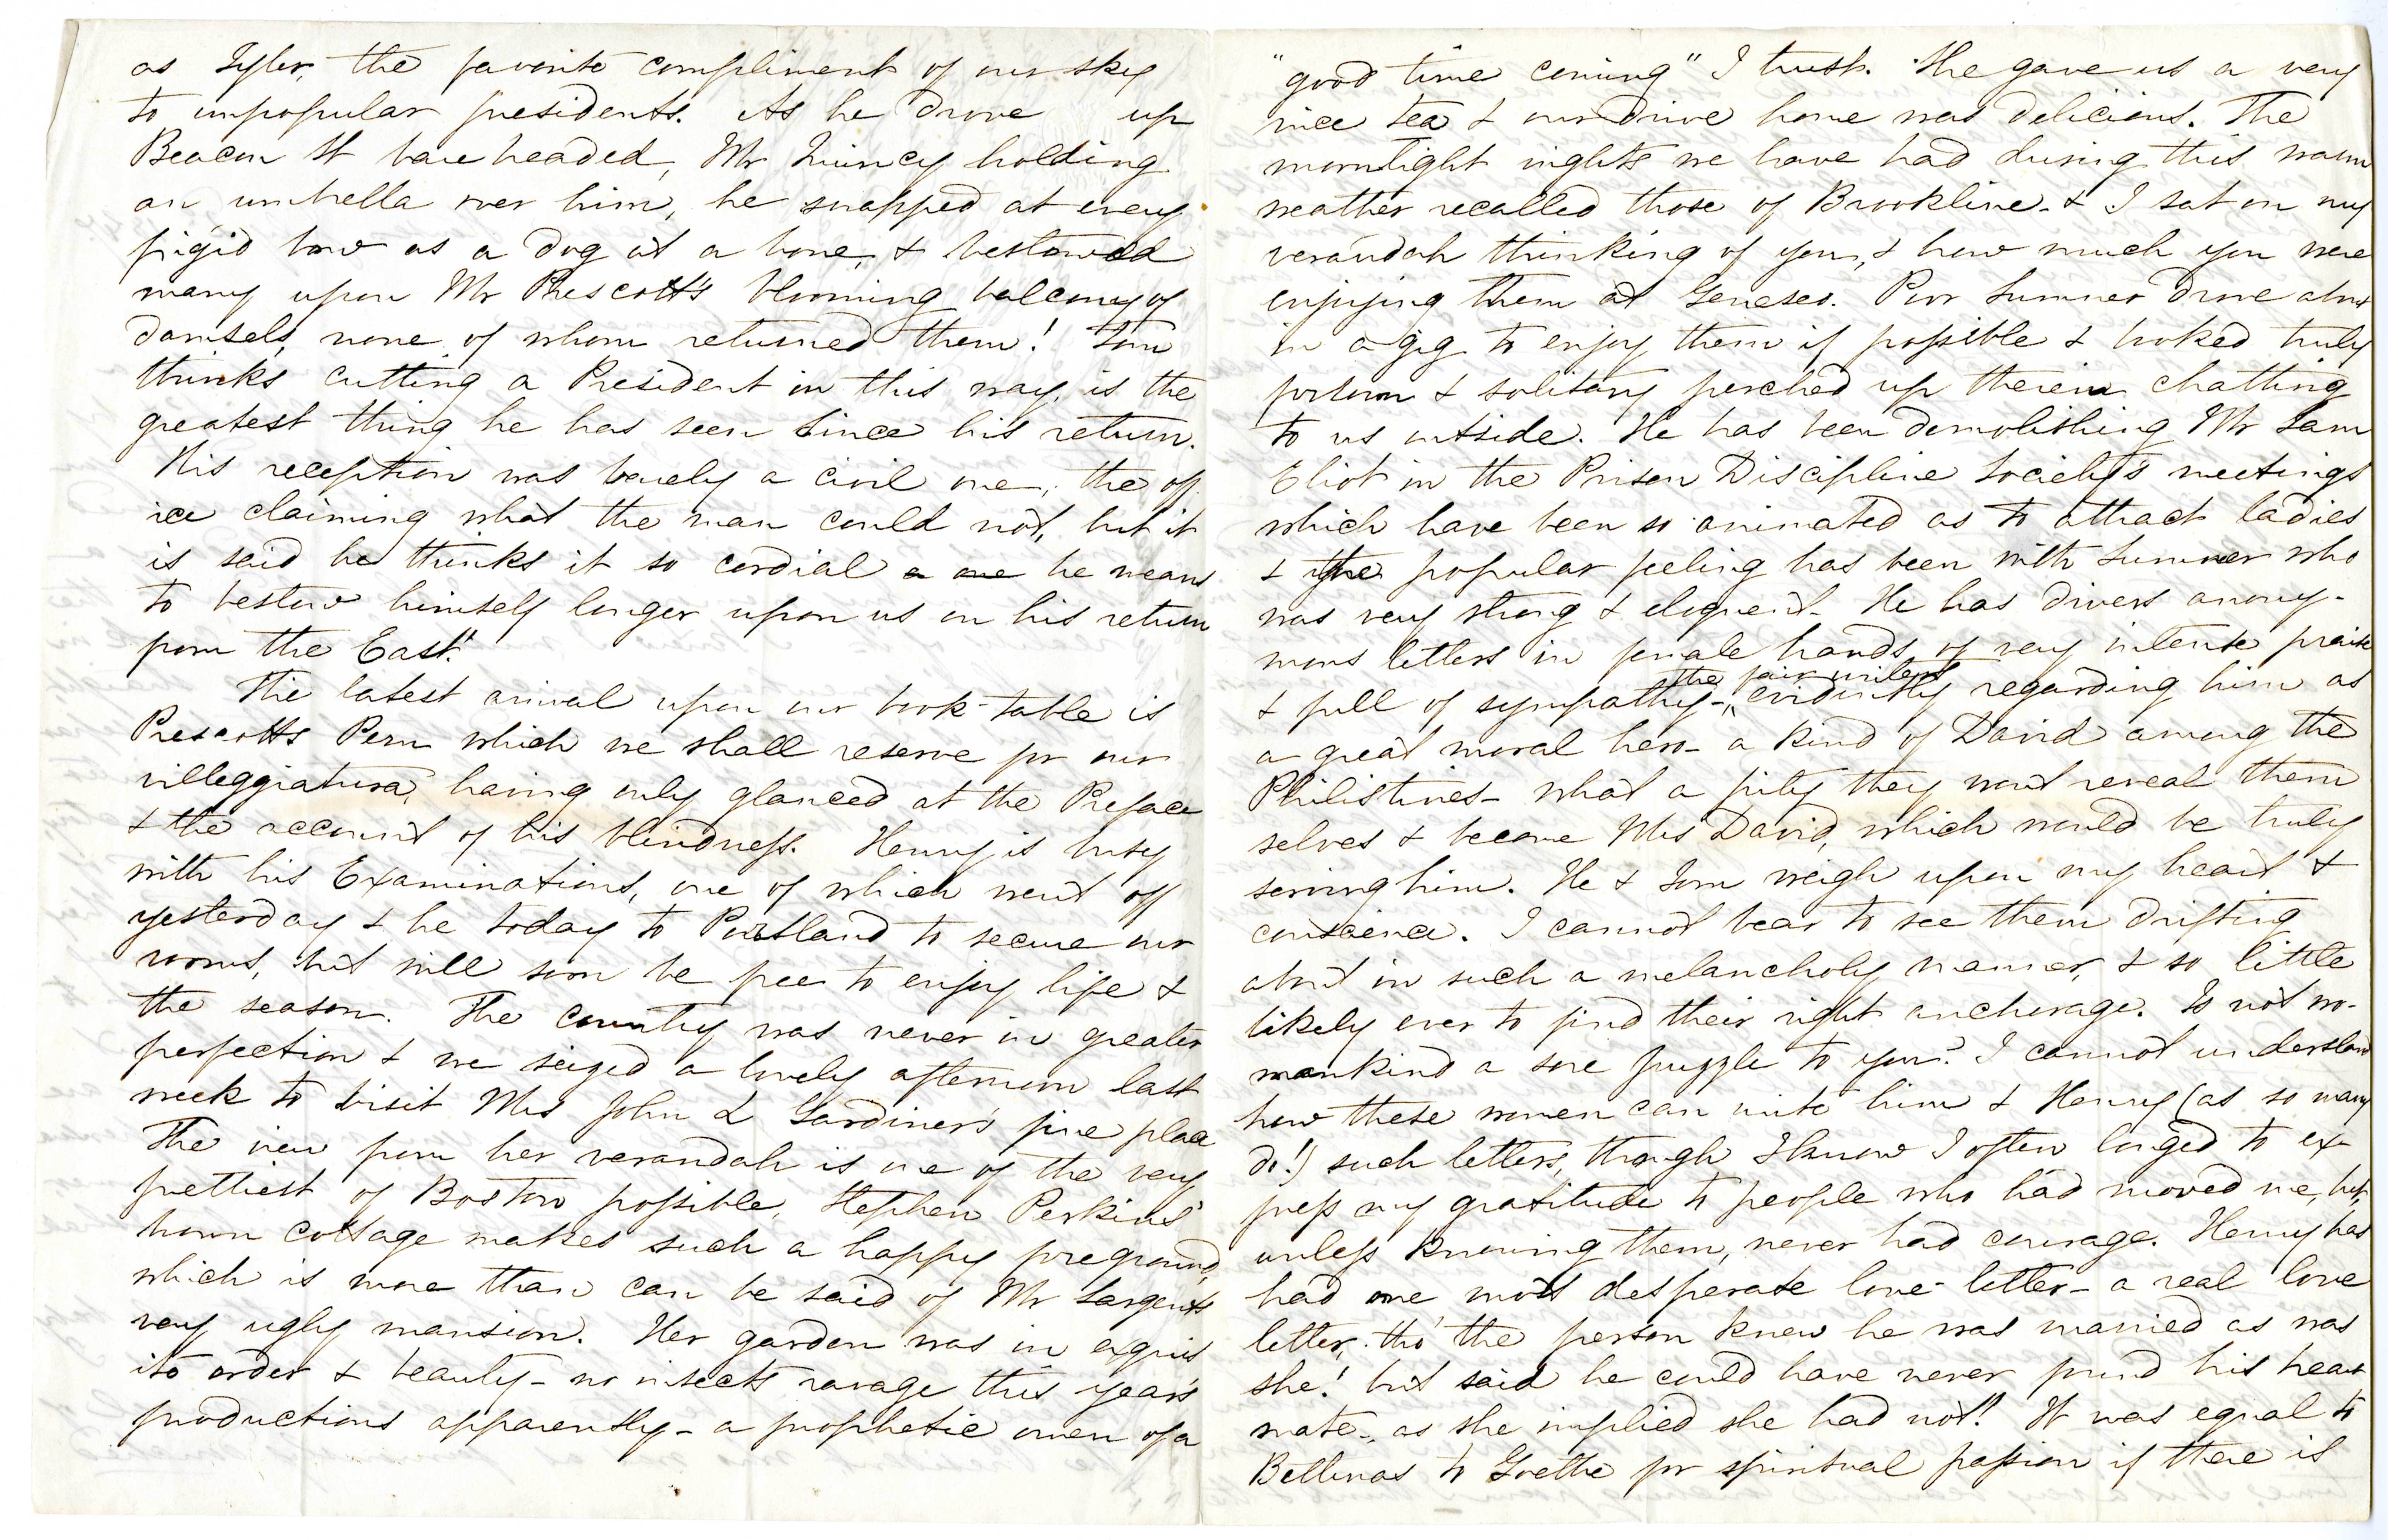 as Tyler, the favorite compliment of our sky
to unpopular presidents. As he drove up
Beacon St bare headed, Mr Quincy holding
an umbrella over him, he snapped at every
frigid bow as a dog at a bone, & bestowed
many upon Mr Prescott's blooming balcony of
damsels, none of whom returned them! Tom
thinks cutting a President in this way, is the
greatest thing he has seen since his return.
His reception was barely a civil one, the off
ice claiming what the man could not, but it
is said he thinks it so cordial a one he means
to bestow himself longer upon us on his return
from the East!
The latest arrival upon our book-table is
Prescotts Peru which we shall reserve for our
villeggiatura, having only glanced at the Preface
& the account of his blindness. Henry is busy
with his Examinations, one of which went off
yesterday & he today to Portland to secure our
rooms, but will soon be free to enjoy life &
the season. The country was never in greater
perfection & we seized a lovely afternoon last
week to visit Mrs John L Gardiner's fine place
The view from her verandah is one of the very
prettiest of Boston possible, Stephen Perkins'
brown cottage makes such a happy foreground,
which is more than can be said of Mr Sargents
very ugly mansion. Her garden was in exquis
ite order & beauty - no insects ravage this year's
productions apparently - a prophetic omen of a
"good time coming" I trust. She gave us a very
nice tea & our drive home was delicious. The
moonlight nights we have had during this warm
weather recalled those of Brookline - & I sat on my
verandah thinking of you, & how much you were
enjoying them at Geneseo. Poor Sumner drove about
in a gig to enjoy them if possible & looked truly
forlorn & solitary perched up therein chatting
to us outside. He has been demolishing Mr Sam
Eliot in the Prison Discipline Society's meetings
which have been so animated as to attract ladies
& the popular feeling has been with Sumner who
was very strong & eloquent - He has divers anony-
mous letters in female hands of very intense praise
& full of sympathy -, the fair writers evidently regarding him as
a great moral hero - a kind of David among the
Philistines - What a pity they wont reveal them
selves & become Mrs David, which would be truly
serving him. He & Tom weigh upon my heart &
conscience. I cannot bear to see them drifting
about in such a melancholy manner, & so little
likely ever to find their right anchorage. Is not wo-
mankind a sore puzzle to you? I cannot understand
how these women can write him & Henry (as so many
do!) such letters, though I know I often longed to ex
press my gratitude to people who had moved me, but,
unless knowing them, never had courage. Henry has
had one most desperate love-letter - a real love
letter, tho' the person knew he was married as was
she! but said he could have never found his heart
mate -, as she implied she had not! It was equal to
Bettinas to Goethe for spiritual passion if there is